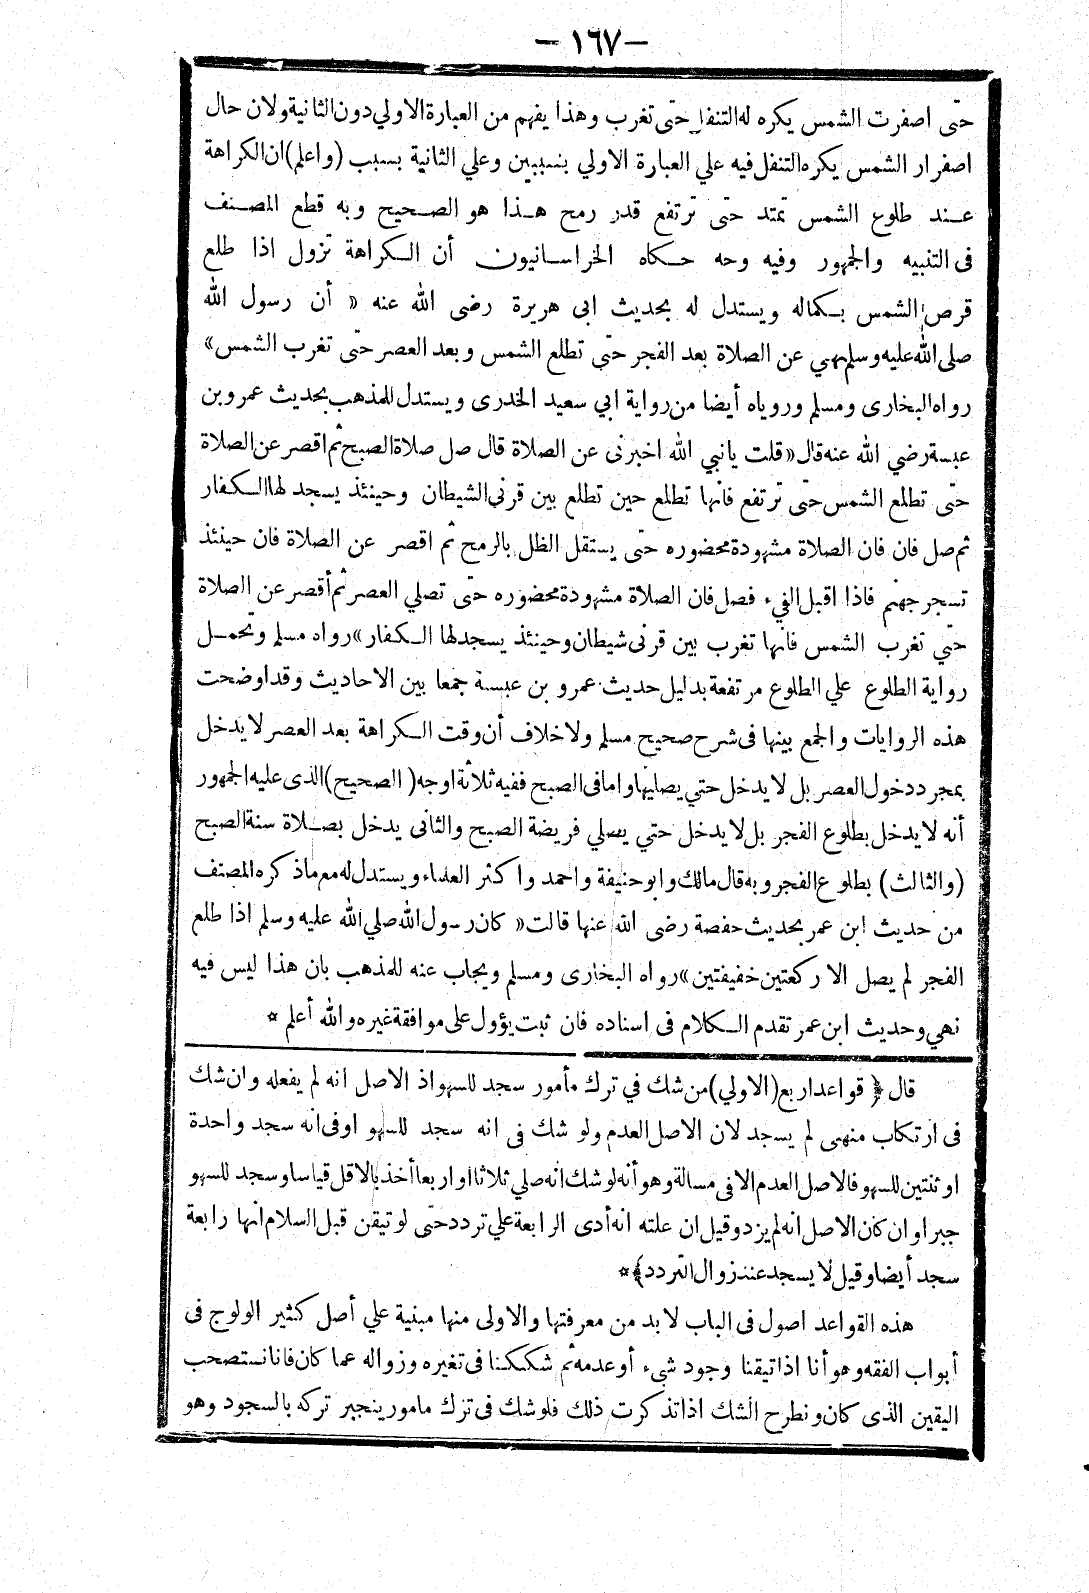 — ١٦٧ —
حتى اصفرت الشمس يكره له التنفل حتى تغرب وهذا يفهم من العبارة الاولي دون الثانية ولان حال
اصفرار الشمس يكره التنفل فيه علي العبارة الاولي بسببين وعلي الثانية بسبب (واعلم) ان الكراهة
عند طلوع الشمس تمتد حتى ترتفع قدر رمح هذا هو الصحيح وبه قطع المصنف
فى التنبيه والجمهور وفيه وحه حكاه الخراسانيون أن الكراهة تزول اذا طلع
قرص الشمس بكماله ويستدل له بحديث ابى هريرة رضى الله عنه « أن رسول الله
صلى الله عليه وسلم نهي عن الصلاة بعد الفجر حتى تطلع الشمس وبعد العصر حتى تغرب الشمس»
رواه البخارى ومسلم وروياه أيضا من رواية ابي سعيد الخدرى ويستدل للمذهب بحديث عمرو بن
عبسة رضي الله عنه قال « قلت يا نبي الله اخبرنى عن الصلاة قال صل صلاة الصبح ثم اقصر عن الصلاة
حتى تطلع الشمس حتى ترتفع فانها تطلع حين تطلع بين قرني الشيطان وحينئذ يسجد لها الكفار
ثم صل فان فان الصلاة مشهودة محضوره حتى يستقل الظل بالرمح ثم اقصر عن الصلاة فان حينئذ
تسجر جهنم فاذا اقبل الفيء فصل فان الصلاة مشهودة محضوره حتى تصلي العصر ثم أقصر عن الصلاة
حتي تغرب الشمس فانها تغرب بين قرنى شيطان وحينئذ يسجد لها الكفار» رواه مسلم وتحمل
رواية الطلوع علي الطلوع مرتفعة بدليل حديث عمرو بن عبسة جمعا بين الاحاديث وقد اوضحت
هذه الروايات والجمع بينها فى شرح صحيح مسلم ولا خلاف أن وقت الكراهة بعد العصر لا يدخل
بمجرد دخول العصر بل لا يدخل حتي يصليها واما فى الصبح ففيه ثلاثة اوجه (الصحيح) الذى عليه الجمهور
أنه لا يدخل بطلوع الفجر بل لا يدخل حتي يصلي فريضة الصبح والثانى يدخل بصلاة سنة الصبح
(والثالث) بطلوع الفجر وبه قال مالك وابو حنيفة واحمد واكثر العلماء ويستدل له مع ماذكره المصنف
من حديث ابن عمر بحديث حفصة رضى الله عنها قالت « كان رسول الله صلي الله عليه وسلم اذا طلع
الفجر لم يصل الا ركعتين خفيفتين» رواه البخارى ومسلم ويجاب عنه للمذهب بان هذا ليس فيه
نهي وحديث ابن عمر تقدم الكلام فى اسناده فان ثبت يؤول على موافقة غيره والله أعلم *
قال ﴿ قواعد اربع (الاولي) من شك في ترك مأمور سجد للسهو اذ الاصل انه لم يفعله وان شك
فى ارتكاب منهى لم يسجد لان الاصل العدم ولو شك فى انه سجد للسهو اوفى انه سجد واحدة
او ثنتين للسهو فالاصل العدم الا فى مسالة وهو أنه لو شك انه صلي ثلاثا او اربعا أخذ بالاقل قياسا وسجد للسهو
جبرا وان كان الاصل انه لم يزد وقيل ان علته انه أدى الرابعة علي تردد حتى لو تيقن قبل السلام انها رابعة
سجد أيضا وقيل لا يسجد عند زوال التردد﴾*
هذه القواعد اصول فى الباب لا بد من معرفتها والاولى منها مبنية علي أصل كثير الولوج فى
أبواب الفقه وهو أنا اذا تيقنا وجود شىء أو عدمه ثم شككنا فى تغيره وزواله عما كان فانا نستصحب
اليقين الذى كان ونطرح الشك اذا تذكرت ذلك فلو شك فى ترك مامور ينجبر تركه بالسجود وهو